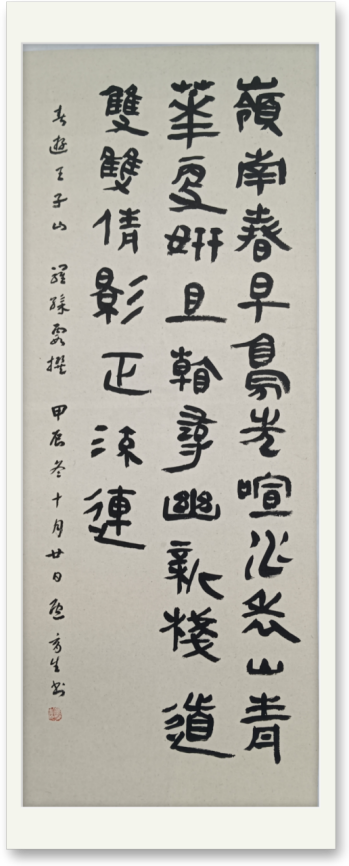 嶺南春早鳥先喧山青
華更妍且看尋幽新棧道
雙雙倩影正流連
春遊王子山 羅綠霞撰 甲辰冬十月廿日 生書